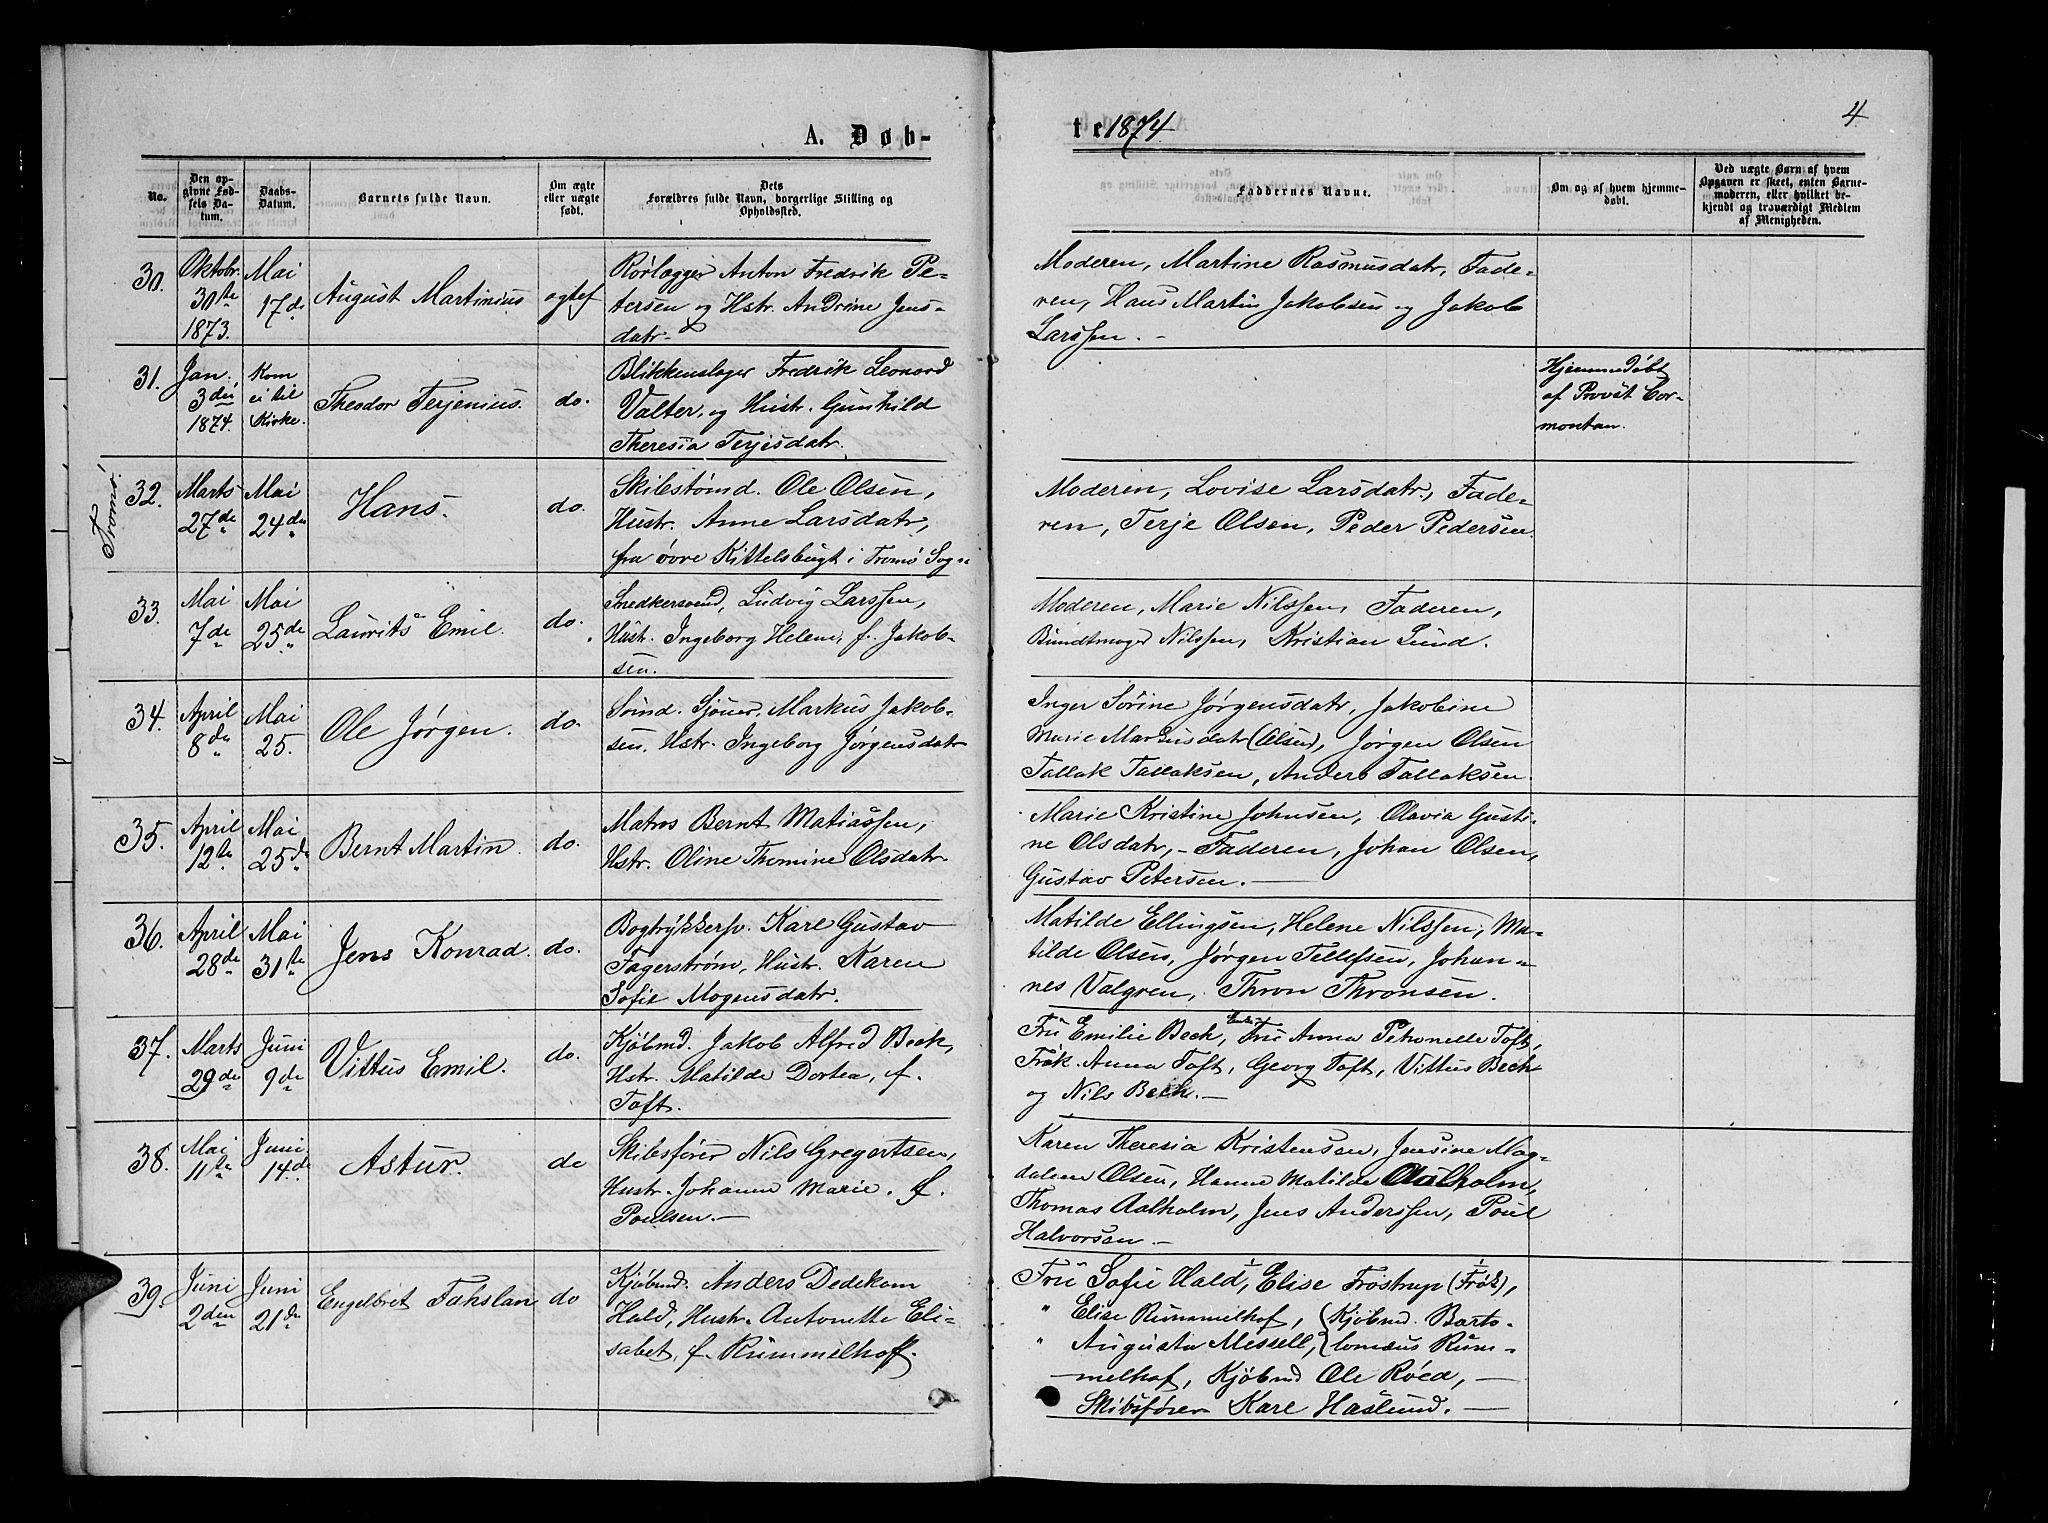 A. Døb-
te 1874
4
No.
Den op-
givne Fød-
sels Da-
tum.
Daabs-
Datum.
Barnets fulde Navn.
Om ægte
eller uægte
født.
Dets
Forældres fulde Navn, borgerlige Stilling og
Opholdssted.
Faddernes Navne.
Om og af hvem hjemme-
døbt.
Ved uægte Børn af hvem
Opgaven er skeet, enten Barne-
moderen, eller hvilket be-
kjendt og troværdigt Medlem
af Menigheden.
30.
Oktobr.
30te
1873.
Mai
17de
August Martinius
ægtef
Rørlægger Anton Fredrik Pe-
tersen og Hstr. Andrine Jens-
datr.
Moderen, Martine Rasmusdatr, Fade-
ren, Hans Martin Jakobsen og Jakob
Larssen. -
31.
Jan.
3die
1874.
Kom
ei til
Kirke.
Theodor Terjenius.
do.
Blikkenslager Fredrik Leonard
Valter, og Hustr. Gunhild
Theresia Terjesdatr.
Hjemmedøbt
af Provst Cor-
montan.
Tromø.
32.
Marts
27de
Mai
24de
Hans.
do.
Skibstømd. Ole Olsen,
Hustr. Anne Larsdatr,
fra øvre Kittelsbugt i Tromø Sogn
Moderen, Lovise Larsdatr, Fade-
ren, Terje Olsen, Peder Pedersen.
33.
Mai
7de
Mai
25de
Laurits Emil.
do.
Snedkersvend, Ludvig Larssen,
Hustr. Ingeborg Helene, f. Jakob-
sen.
Moderen, Marie Nilssen, Faderen,
Bundtmager Nilssen, Kristian Lund.
34.
April
8de
Mai
25.
Ole Jørgen.
do.
Sømd. Markus Jakob-
sen, Hstr. Ingeborg Jørgensdatr
Inger Sørine Jørgensdatr, Jakobine
Marie Markusdatr (Olsen), Jørgen Olsen
Tallak Tallaksen, Anders Tallaksen.
35.
April
12te
Mai
25de
Bernt Martin.
do.
Matros Bernt Matiassen,
Hstr. Oline Thomine Olsdatr
Marie Kristine Johnsen, Olavia Gusti-
ne Olsdatr, - Faderen, Johan Olsen,
Gustav Petersen. -
36.
April
28de
Mai
31te
Jens Konrad.
do.
Bogtrykkersv. Karl Gustav
Fagerstrøm, Hustr. Karen
Sofie Mogensdatr.
Matilde Ellingsen, Helene Nilssen, Ma-
tilde Olsen, Jørgen Tellefsen, Johan-
nes Valgren, Thron Thronsen.
37.
Marts
29de
Juni
9de
Vittus Emil.
do.
Kjøbmd. Jakob Alfred Beck,
Hstr. Matilde Dortea, f.
Toft.
Fru Emilie Bech, Fru Anna Petronelle Toft,
Frøk. Anna Toft, Georg Toft, Vittus Bech
og Nils Bech. -
38.
Mai
11te
Juni
14de
Astur.
do
Skibsfører Nils Gregertsen,
Hustr. Johanne Marie. f.
Poulsen. -
Karen Theresia Kristensen, Jensine Mag-
dalene Olsen, Hanne Matilde Aalholm,
Thomas Aalholm, Jens Anderssen, Poul
Halvorsen. -
39.
Juni
2den
Juni
21de
Engelbret Fahslan
do
Kjøbmd. Anders Dedekam
Hald, Hustr. Antonette Eli-
sabet, f. Rummelhoff.
Fru Sofie Hald, Elise Frøstrup (Frøk),
" Elise Rummelhof, (Kjøbmd. Barto-
" Augusta Messell, (lomæus Rum-
melhof, Kjøbmd Ole Røed, -
Skibsfører Karl Haslund. -